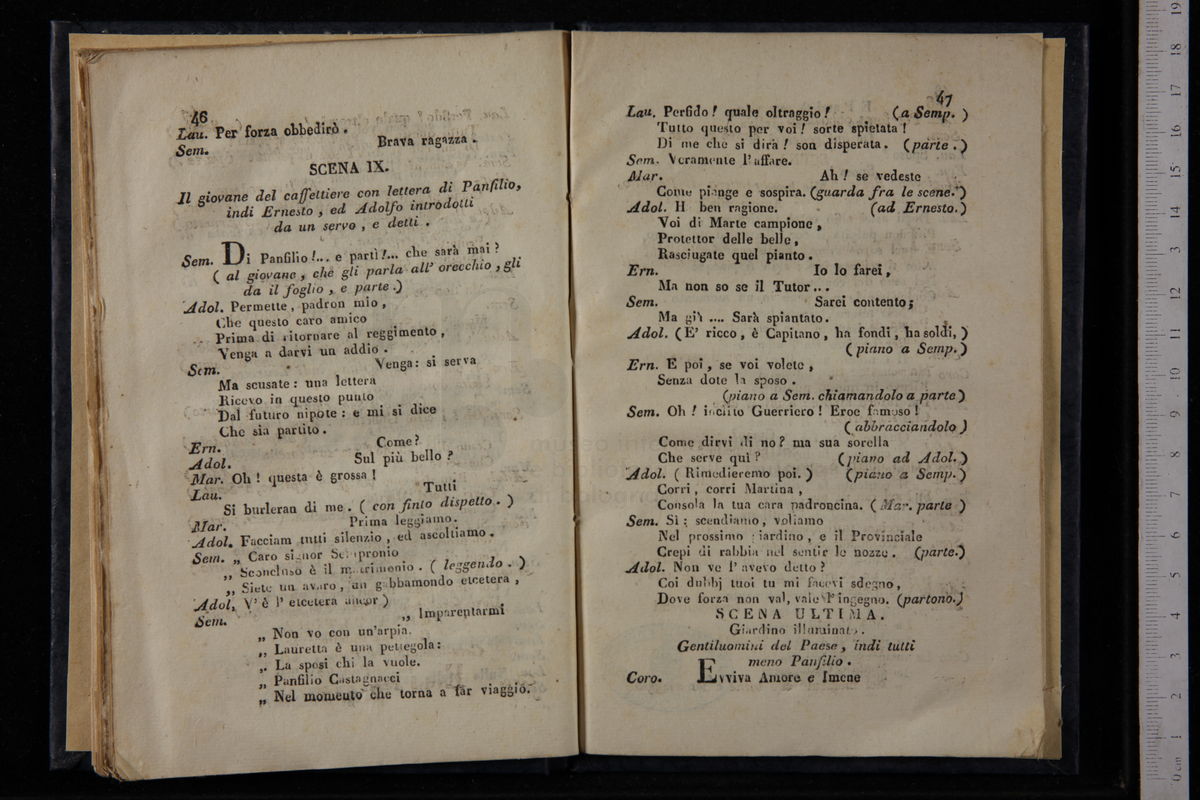 46
Lau. Per forza obbedirò.
Sem. Brava ragazza.
SCENA IX.
Il giovane del caffettiere con lettera di Panfilio,
indi Ernesto, ed Adolfo introdotti
da un servo, e detti.
Sem. Di Panfilio!... e partì!... che sarà mai?
( al giovane, che gli parla all' orecchio, gli
da il foglio, e parte.)
Adol. Permette, padron mio,
Che questo caro amico
Prima di ritornare al reggimento,
Venga a darvi un addio.
Sem. Venga: si serva
Ma scusate: una lettera
Ricevo in questo punto
Dal futuro nipote: e mi si dice
Che sia partito.
Ern. Come?
Adol. Sul più bello?
Mar. Oh! questa è grossa!
Lau. Tutti
Si burleran di me. ( con finto dispetto. )
Mar. Prima leggiamo.
Adol. Facciam tutti silenzio, ed ascoltiamo.
Sem. „ Caro signor Sempronio
„ Sconcluso è il matrimonio. ( leggendo. )
„ Siete un avaro, un gabbamondo etcetera,
Adol. V' è l' etcetera ancor )
Sem. „ Imparentarmi
„ Non vo con un'arpia.
„ Lauretta è una pettegola:
„ La sposi chi la vuole.
„ Panfilio Castagnacci
„ Nel momento che torna a far viaggio.
47
Lau. Perfido! quale oltraggio! (a Semp. )
Tutto questo per voi! sorte spietata!
Di me che si dirà! son disperata. (parte.)
Sem. Veramente l'affare.
Mar. Ah! se vedeste
Come piange e sospira. (guarda fra le scene.)
Adol. H ben ragione. (ad Ernesto.)
Voi di Marte campione,
Protettor delle belle,
Rasciugate quel pianto.
Ern. Io lo farei,
Ma non so se il Tutor...
Sem. Sarei contento;
Ma già .... Sarà spiantato.
Adol. (E' ricco, è Capitano, ha fondi, ha soldi,)
( piano a Semp.)
Ern. E poi, se voi volete,
Senza dote la sposo.
(piano a Sem. chiamandolo a parte)
Sem. Oh! inclito Guerriero! Eroe famoso!
( abbracciandolo )
Come dirvi di no? ma sua sorella
Che serve quì? (piano ad Adol.)
Adol. ( Rimedieremo poi. ) (piano a Semp.)
Corri, corri Martina,
Consola la tua cara padroncina. ( Mar. parte )
Sem. Sì; scendiamo, voliamo
Nel prossimo giardino, e il Provinciale
Crepi di rabbia nel sentir le nozze. (parte.)
Adol. Non ve l'avevo detto?
Coi dubbj tuoi tu mi facevi sdegno,
Dove forza non val, vale l'ingegno. (partono.)
SCENA ULTIMA.
Giardino illuminato.
Gentiluomini del Paese, indi tutti
meno Panfilio.
Coro. Evviva Amore e Imene